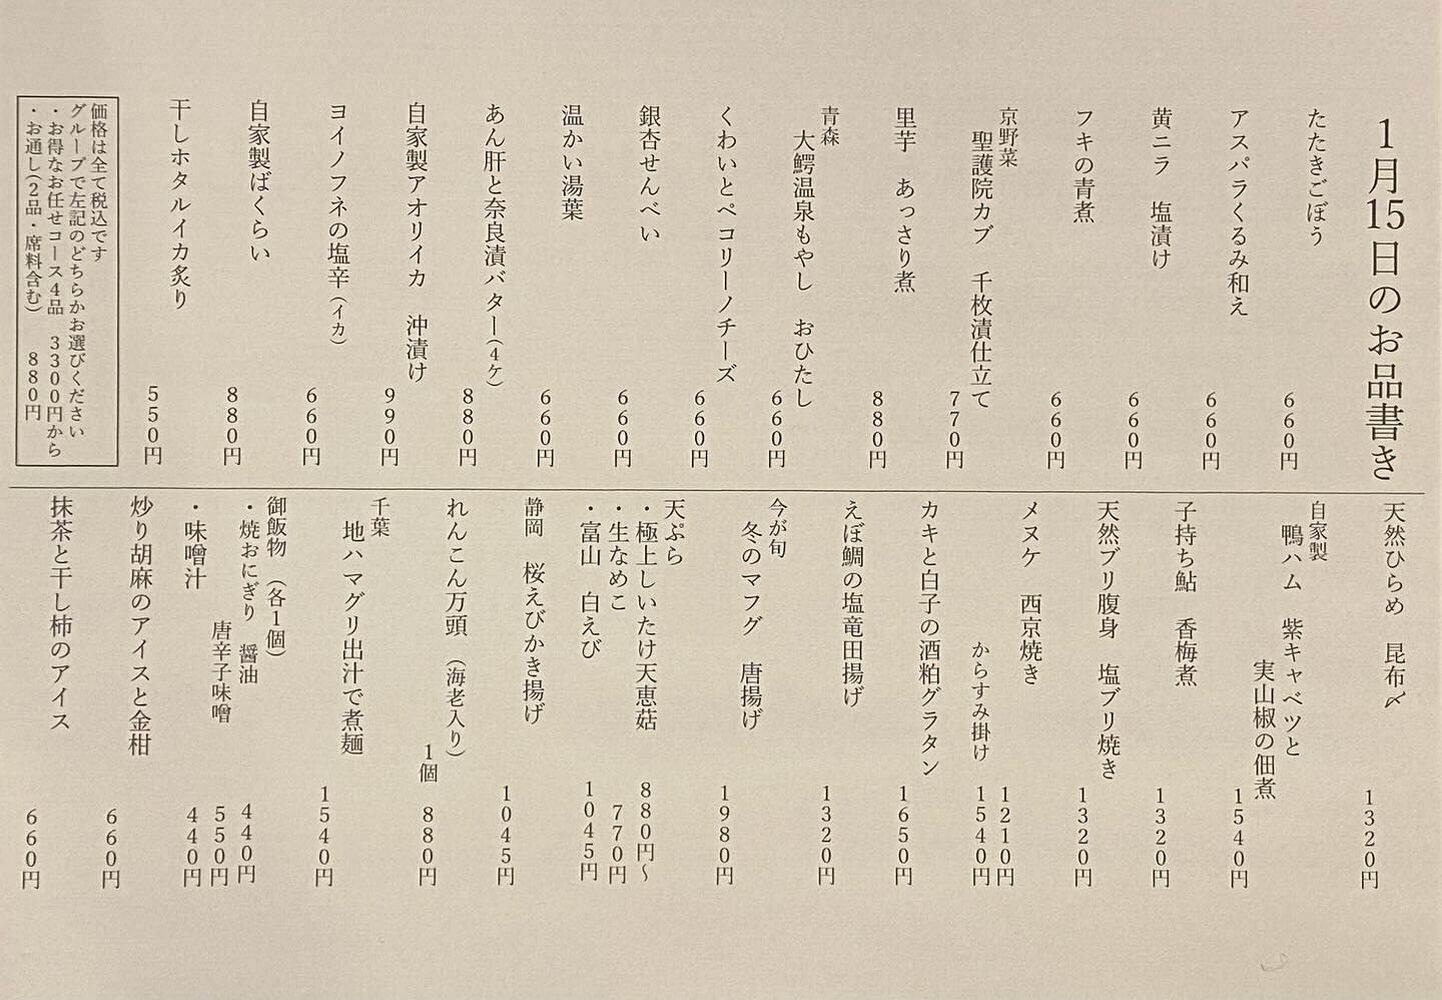 1月15日のお品書き
たたきごぼう
660円
アスパラくるみ和え
660円
黄ニラ 塩漬け
660円
フキの青煮
660円
京野菜
聖護院カブ 千枚漬仕立て
770円
里芋 あっさり煮
880円
青森
大鰐温泉もやし おひたし
660円
くわいとペコリーノチーズ
660円
銀杏せんべい
660円
温かい湯葉
660円
あん肝と奈良漬バター(4ケ)
880円
自家製アオリイカ 沖漬け
990円
ヨイノフネの塩辛(イカ)
660円
自家製ばくらい
880円
干しホタルイカ炙り
550円
価格は全て税込です
グループで左記のどちらかお選びください
・お得なお任せコース4品 3300円から
・お通し(2品・席料含む) 880円
天然ひらめ 昆布〆
1320円
自家製
鴨ハム 紫キャベツと
実山椒の佃煮
1540円
子持ち鮎 香梅煮
1320円
天然ブリ腹身 塩ブリ焼き
1320円
メヌケ 西京焼き
1210円
からすみ掛け 1540円
カキと白子の酒粕グラタン
1650円
えぼ鯛の塩竜田揚げ
1320円
今が旬
冬のマフグ 唐揚げ
1980円
天ぷら
・極上しいたけ天恵菇 880円~
・生なめこ 770円
・富山 白えび 1045円
静岡 桜えびかき揚げ
1045円
れんこん万頭 (海老入り)
1個 880円
千葉
地ハマグリ出汁で煮麺
1540円
御飯物 (各1個)
・焼おにぎり 醤油 440円
唐辛子味噌 550円
・味噌汁 440円
炒り胡麻のアイスと金柑
660円
抹茶と干し柿のアイス
660円